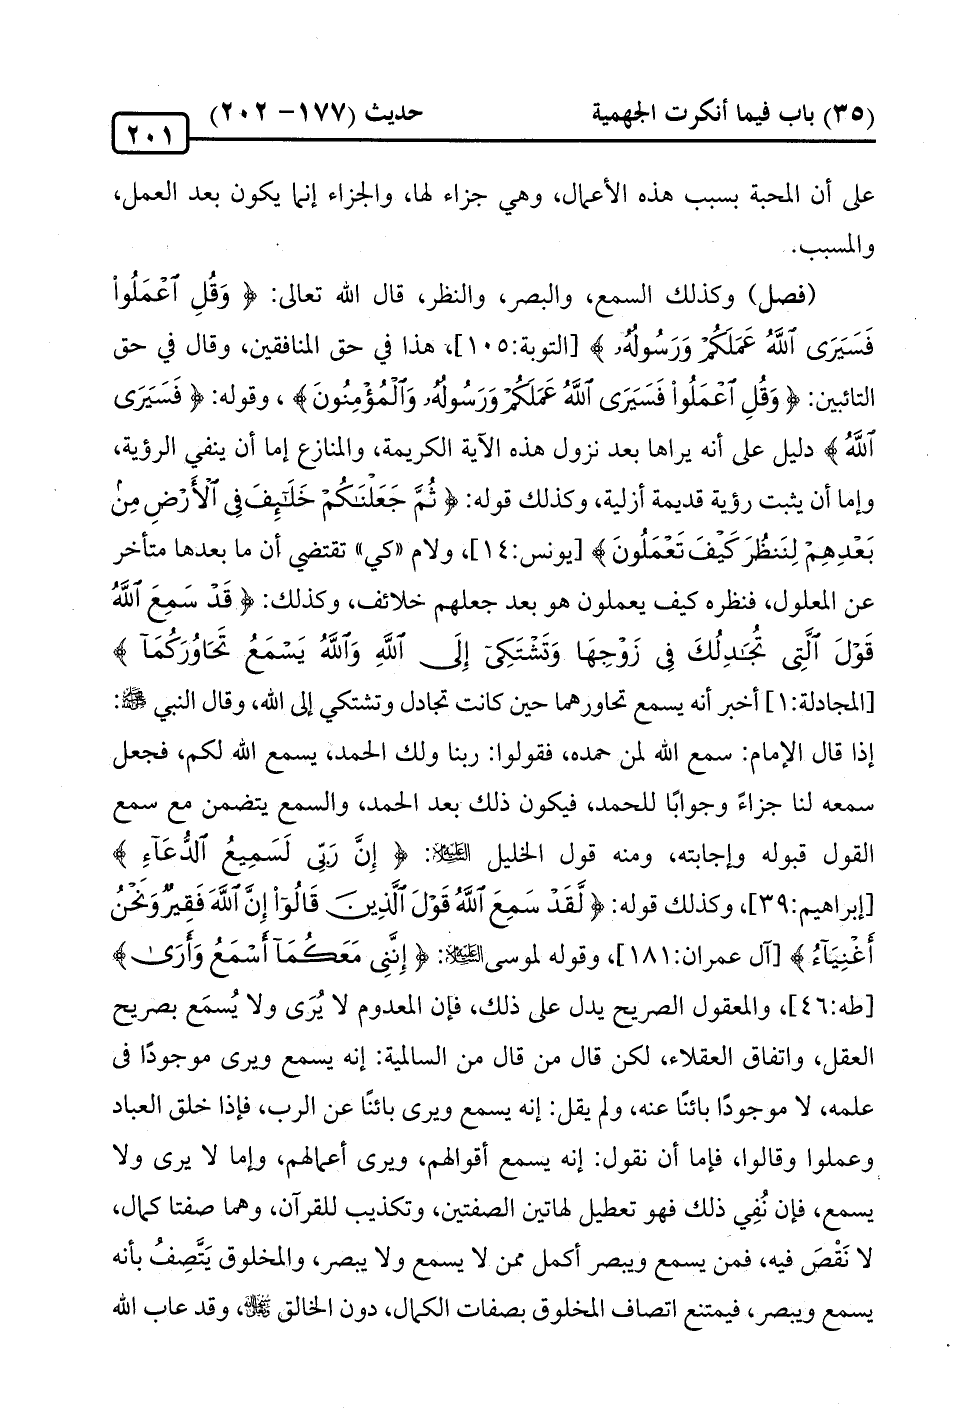 (٣٥) باب فيما أنكرت الجهمية حديث (١٧٧- ٢٠٢)
٢٠١
على أن المحبة بسبب هذه الأعمال، وهي جزاء لها، والجزاء إنما يكون بعد العمل،
والمسبب.
(فصل) وكذلك السمع، والبصر، والنظر، قال الله تعالى: ﴿ وَقُلِ ٱعْمَلُوا۟
فَسَيَرَى ٱللَّهُ عَمَلَكُمْ وَرَسُولُهُۥ ﴾ [التوبة:١٠٥]، هذا في حق المنافقين، وقال في حق
التائبين: ﴿ وَقُلِ ٱعْمَلُوا۟ فَسَيَرَى ٱللَّهُ عَمَلَكُمْ وَرَسُولُهُۥ وَٱلْمُؤْمِنُونَ﴾ ، وقوله: ﴿ فَسَيَرَى
ٱللَّهُ ﴾ دليل على أنه يراها بعد نزول هذه الآية الكريمة، والمنازع إما أن ينفي الرؤية،
وإما أن يثبت رؤية قديمة أزلية، وكذلك قوله: ﴿ ثُمَّ جَعَلْنَٰكُمْ خَلَٰٓئِفَ فِى ٱلْأَرْضِ مِنۢ
بَعْدِهِمْ لِنَنظُرَ كَيْفَ تَعْمَلُونَ﴾ [يونس:١٤]، ولام «كي» تقتضي أن ما بعدها متأخر
عن المعلول، فنظره كيف يعملون هو بعد جعلهم خلائف، وكذلك: ﴿ قَدْ سَمِعَ ٱللَّهُ
قَوْلَ ٱلَّتِى تُجَٰدِلُكَ فِى زَوْجِهَا وَتَشْتَكِىٓ إِلَى ٱللَّهِ وَٱللَّهُ يَسْمَعُ تَحَاوُرَكُمَآ ﴾
[المجادلة:١] أخبر أنه يسمع تحاورهما حين كانت تجادل وتشتكي إلى الله، وقال النبي ﷺ:
إذا قال الإمام: سمع الله لمن حمده، فقولوا: ربنا ولك الحمد، يسمع الله لكم، فجعل
سمعه لنا جزاءً وجوابًا للحمد، فيكون ذلك بعد الحمد، والسمع يتضمن مع سمع
القول قبوله وإجابته، ومنه قول الخليل عليه السلام: ﴿ إِنَّ رَبِّى لَسَمِيعُ ٱلدُّعَآءِ ﴾
[إبراهيم:٣٩]، وكذلك قوله: ﴿ لَّقَدْ سَمِعَ ٱللَّهُ قَوْلَ ٱلَّذِينَ قَالُوٓا۟ إِنَّ ٱللَّهَ فَقِيرٌ وَنَحْنُ
أَغْنِيَآءُ ﴾ [آل عمران:١٨١]، وقوله لموسى عليه السلام: ﴿ إِنَّنِى مَعَكُمَآ أَسْمَعُ وَأَرَىٰ ﴾
[طه:٤٦]، والمعقول الصريح يدل على ذلك، فإن المعدوم لا يُرَى ولا يُسمَع بصريح
العقل، واتفاق العقلاء، لكن قال من قال من السالمية: إنه يسمع ويرى موجودًا فى
علمه، لا موجودًا بائنًا عنه، ولم يقل: إنه يسمع ويرى بائنًا عن الرب، فإذا خلق العباد
وعملوا وقالوا، فإما أن نقول: إنه يسمع أقوالهم، ويرى أعمالهم، وإما لا يرى ولا
يسمع، فإن نُفِي ذلك فهو تعطيل لهاتين الصفتين، وتكذيب للقرآن، وهما صفتا كمال،
لا نَقْصَ فيه، فمن يسمع ويبصر أكمل ممن لا يسمع ولا يبصر، والمخلوق يَتَّصِفُ بأنه
يسمع ويبصر، فيمتنع اتصاف المخلوق بصفات الكمال، دون الخالق ﷻ، وقد عاب الله